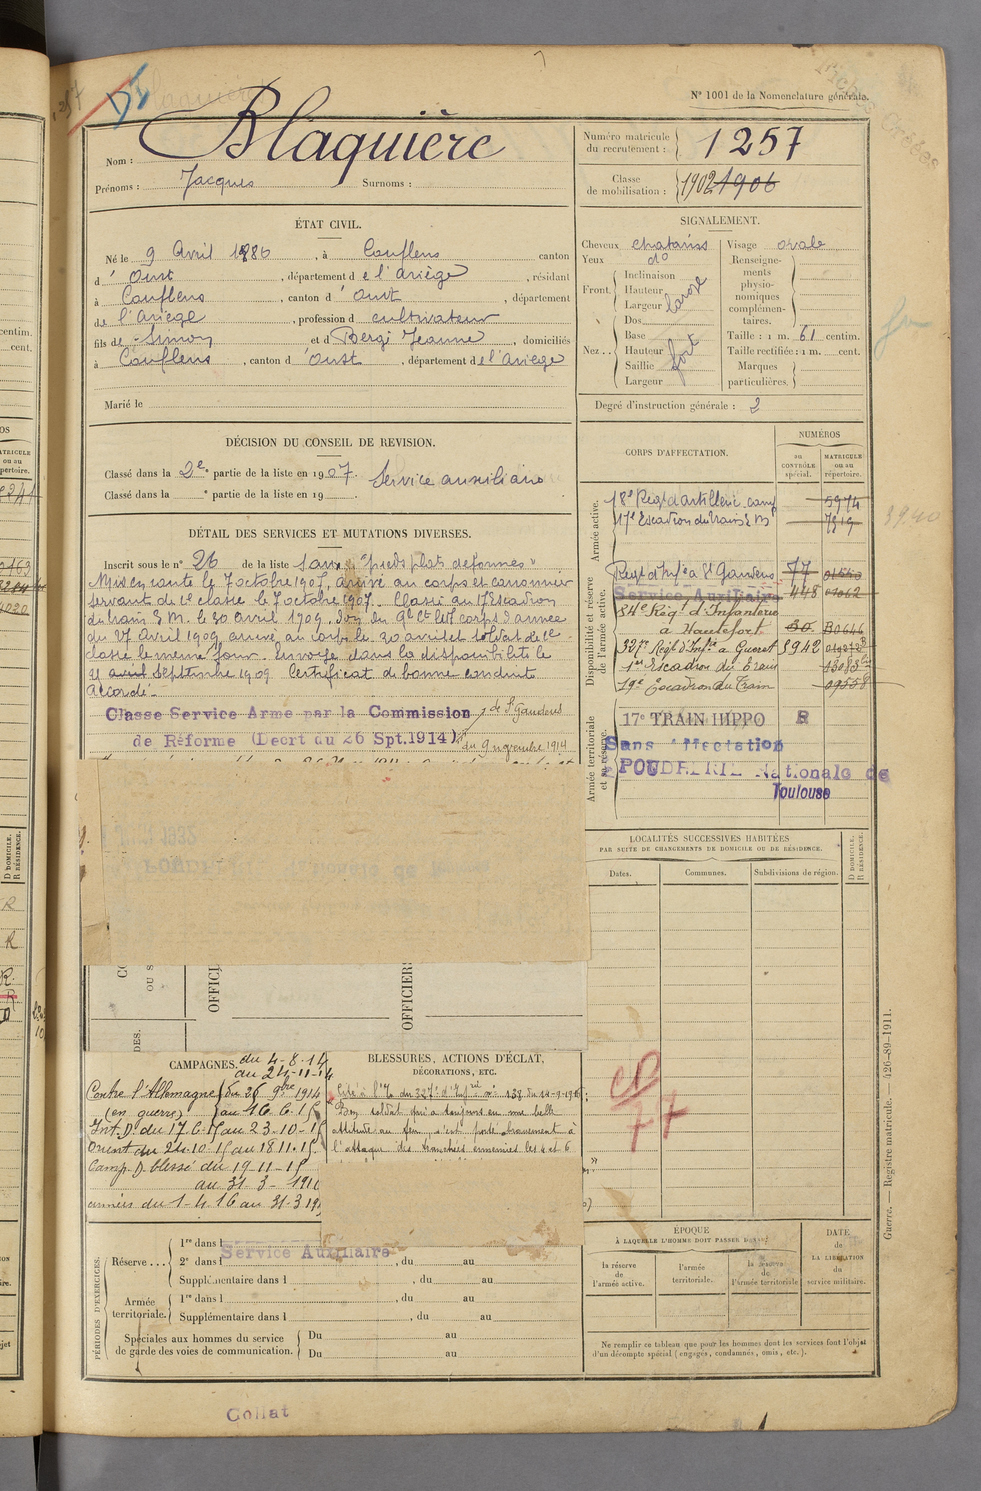 N° 1001 de la Nomenclature générale.
Nom : Blaquière
Prénoms : Jacques Surnoms :
Numéro matricule du recrutement : 1257
Classe de mobilisation : 1902 1906
ÉTAT CIVIL.
Né le 9 Avril 1886, à Couflens canton
d'Oust, département de l'Ariège, résidant
à Couflens, canton d'Oust, département
de l'Ariège, profession de cultivateur
fils de Simon et de Bergé Jeanne, domiciliés
à Couflens, canton d'Oust, département de l'Ariège
Marié le
SIGNALEMENT.
Cheveux chatains Visage ovale
Yeux do
Front. Inclinaison Hauteur Largeur
Nez.. Dos, Base Hauteur Saillie Largeur fort
Renseignements physionomiques complémentaires.
Taille : 1 m. 61 centim.
Taille rectifiée : 1 m. cent.
Marques particulières.
Degré d'instruction générale : 2
DÉCISION DU CONSEIL DE REVISION.
Classé dans la 2e partie de la liste en 1907. Service auxiliaire
Classé dans la e partie de la liste en 19
DÉTAIL DES SERVICES ET MUTATIONS DIVERSES.
Inscrit sous le n° 26 de la liste "pieds plats deformés"
Mis en route le 7 octobre 1907, arrivé au corps et canonnier
servant de 2e classe le 7 octobre 1907. Classé au 17 Escadron
du train E.M. le 30 avril 1909. d'armée
du 27 Avril 1909 arrivé au corps le 30 avril et soldat de 2e
classe le même jour. Envoyé dans la disponibilité le
25 avril Septembre 1909 Certificat de bonne conduite
Accordé.
Classe Service Arme par la Commission de St Gaudens
de Réforme (Decrt du 26 Spt.1914) du 9 novembre 1914
CORPS D'AFFECTATION.
NUMÉROS
au CONTRÔLE spécial.
MATRICULE ou au répertoire.
Armée active.
18e Regt d'artillerie camp 5974
17e Escadron du train E.M. 7319
3940
Disponibilité et réserve de l'armée active.
Regt d'Infie St Gaudens 77
Service Auxiliaire 448 01062
34e Regt d'Infanterie
à Hautefort 30. B0646
327e Regt d'Infie à Gueret 3942
1er Escadron du Train 13085
19e Escadron du Train 09558
Armée territoriale et sa réserve.
17e TRAIN HIPPO R
Sans Affectation
POUDRERIE Nationale de
Toulouse
LOCALITÉS SUCCESSIVES HABITÉES
PAR SUITE DE CHANGEMENTS DE DOMICILE OU DE RÉSIDENCE.
Dates. Communes. Subdivisions de région. D DOMICILE. R RÉSIDENCE.
OFFICI
OFFICIERS
CAMPAGNES. du 4-8-14
au 24-11-14
Contre l'Allemagne du 26 9bre 1914
(en guerre) au 16-6-15
Int. D du 17.6.15 au 23-10-15
Orient du 24.10-15 au 18 11.15
Camp. D blessé du 19-11-15
au 31 3- 1916
armées du 1-4 16 au 31-3 19
BLESSURES, ACTIONS D'ÉCLAT,
DÉCORATIONS, ETC.
Cité à l'O. du 327e d'Infrie n° 138 du 14-9-1915
"Bon soldat qui a toujours eu une belle
attitude au feu s'est porté bravement à
l'attaque des tranchées ennemies les 4 et 6
CD
77
PÉRIODES D'EXERCICES.
Réserve... 1re dans l
2e dans l, du au
Supplémentaire dans l, du au
Service Auxiliaire
Armée territoriale. 1re dans l, du au
Supplémentaire dans l, du au
Spéciales aux hommes du service de garde des voies de communication. Du au
Du au
ÉPOQUE
À LAQUELLE L'HOMME DOIT PASSER DANS:
la réserve de l'armée active.
l'armée territoriale.
la réserve de l'armée territoriale
DATE de LA LIBÉRATION du service militaire.
Ne remplir ce tableau que pour les hommes dont les services font l'objet
d'un décompte spécial (engagés, condamnés, omis, etc.).
Guerre. — Registre matricule. — 426-89-1911.
Collat